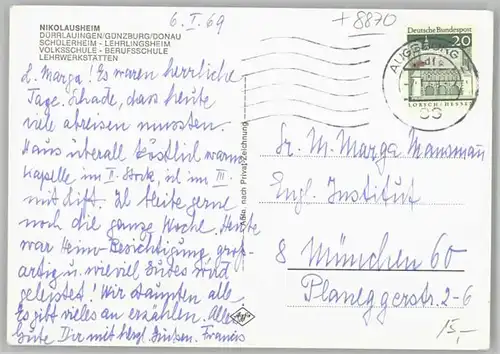 6. I. 69
+8870
NIKOLAUSHEIM
DÜRRLAUINGEN/GÜNZBURG/DONAU
SCHÜLERHEIM - LEHRLINGSHEIM
VOLKSSCHULE - BERUFSSCHULE
LEHRWERKSTÄTTEN
Deutsche Bundespost
20
LORSCH/HESSEN
AUGSBURG
L. Marga! Es waren herrliche
Tage. Schade, dass heute
viele abreisen mussten.
Haus überall köstlich warm
Kapelle im II. Stock, ich im III.
mit Lift. Ich bleibe gerne
noch die ganze Woche. Heute
war Heim-Besichtigung, groß-
artig u. wieviel Gutes wird
geleistet! Wir staunten alle
Es gibt vieles zu erzählen. Alles
Gute Dir mit herzl. Grüßen. Francis
nach Privat-Zeichnung
M. Marga Mansmann
Engl. Institut
8 München 60
Planeggerstr. 2-6
15,-